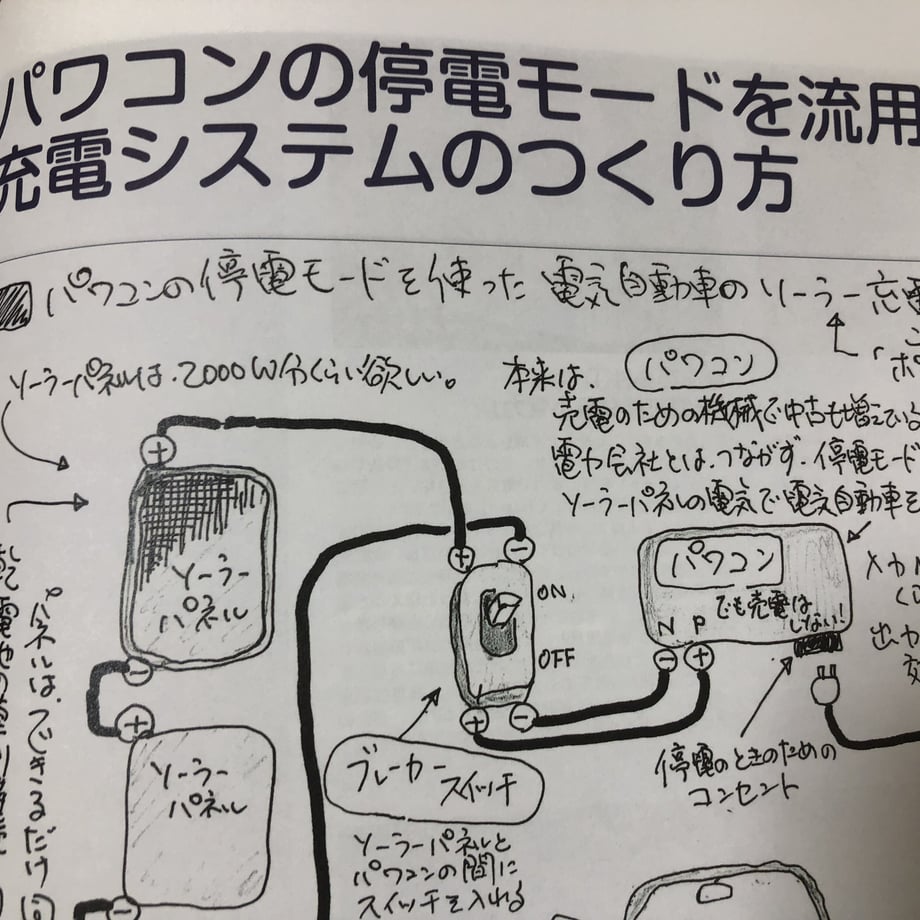 パワコンの停電モードを流用
充電システムのつくり方
パワコンの停電モードを使った電気自動車のソーラー充電
ソーラーパネルは、2000W分くらい欲しい。
本来は、
パワコン
売電のための機械で中古も増えている
電力会社とは、つながず、停電モード
ソーラーパネルの電気で電気自動車を
+
ソーラー
パネル
-
+
ソーラー
パネル
-
+ -
ON
OFF
+ -
ブレーカー
スイッチ
ソーラーパネルと
パワコンの間に
スイッチを入れる
パワコン
でも売電は
しない!
N P
- +
停電のときのための
コンセント
パネルは、できるだけ同